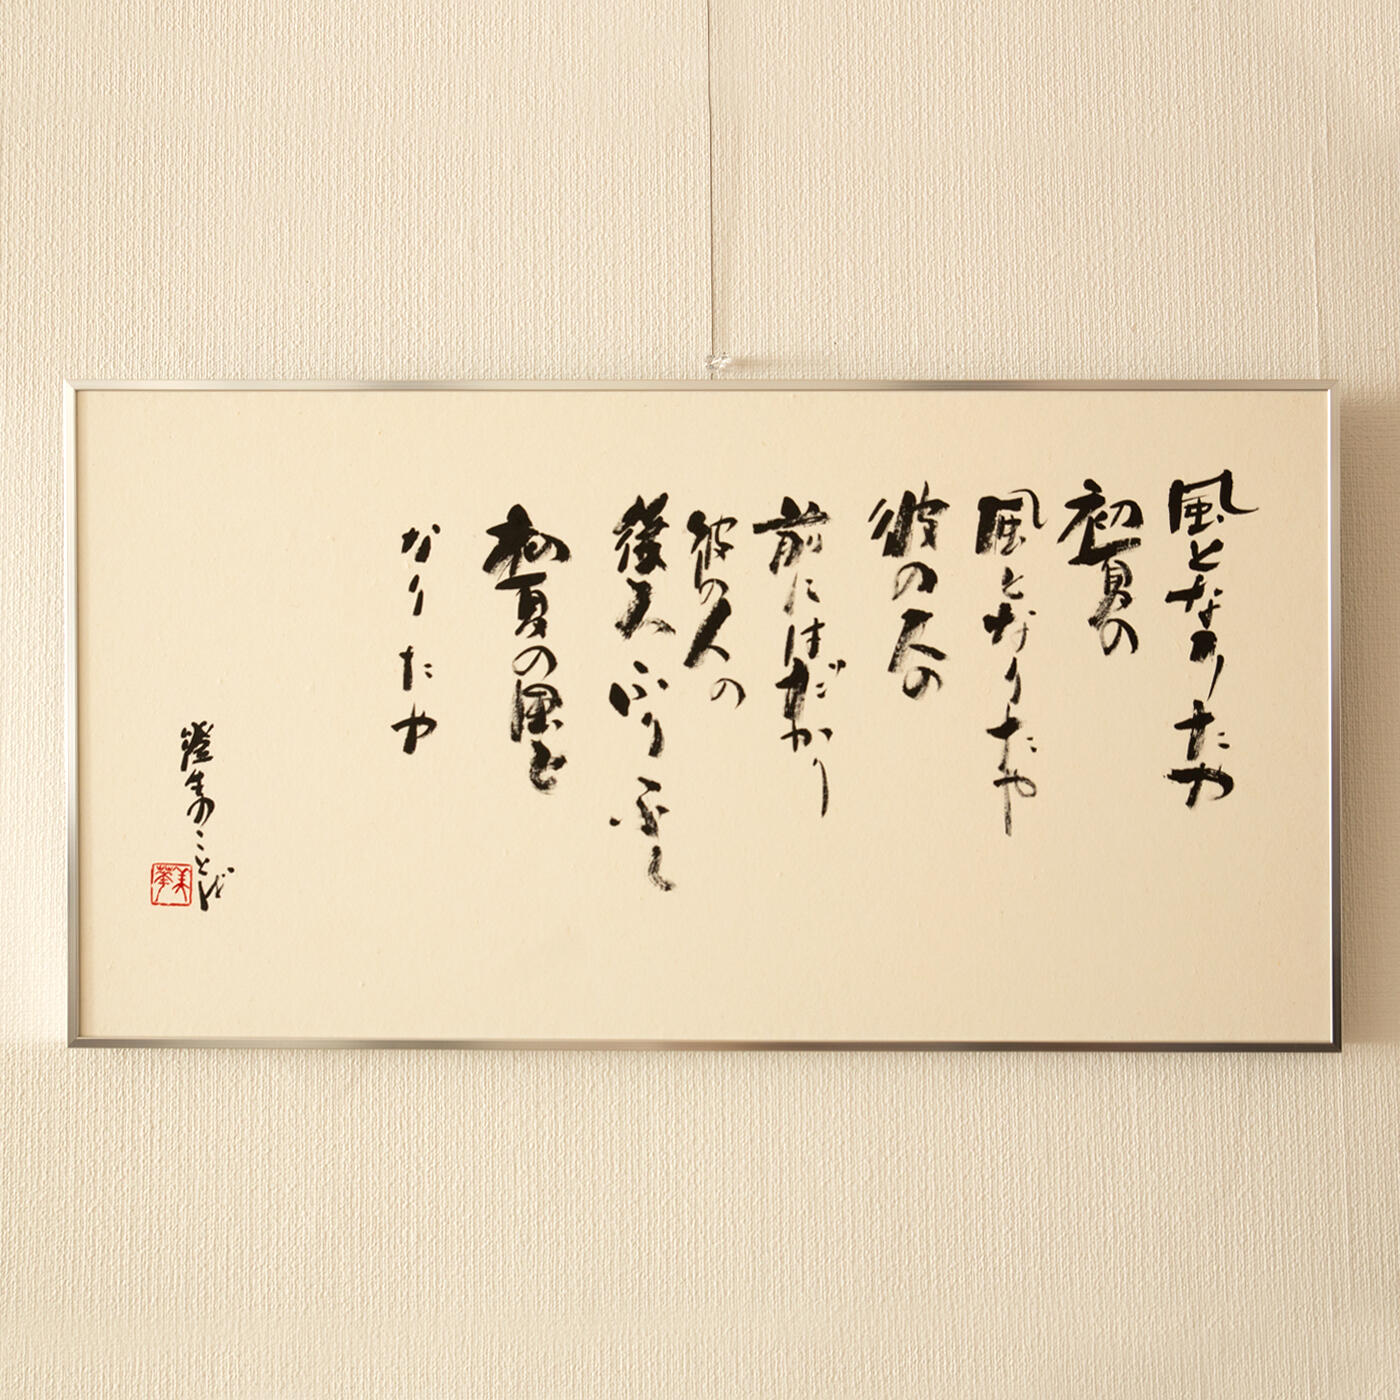 風となりたや
初夏の
風となりたや
彼の人の
前にはだかり
彼の人の
後
初夏の風と
なりたや
澄生のことば
美華